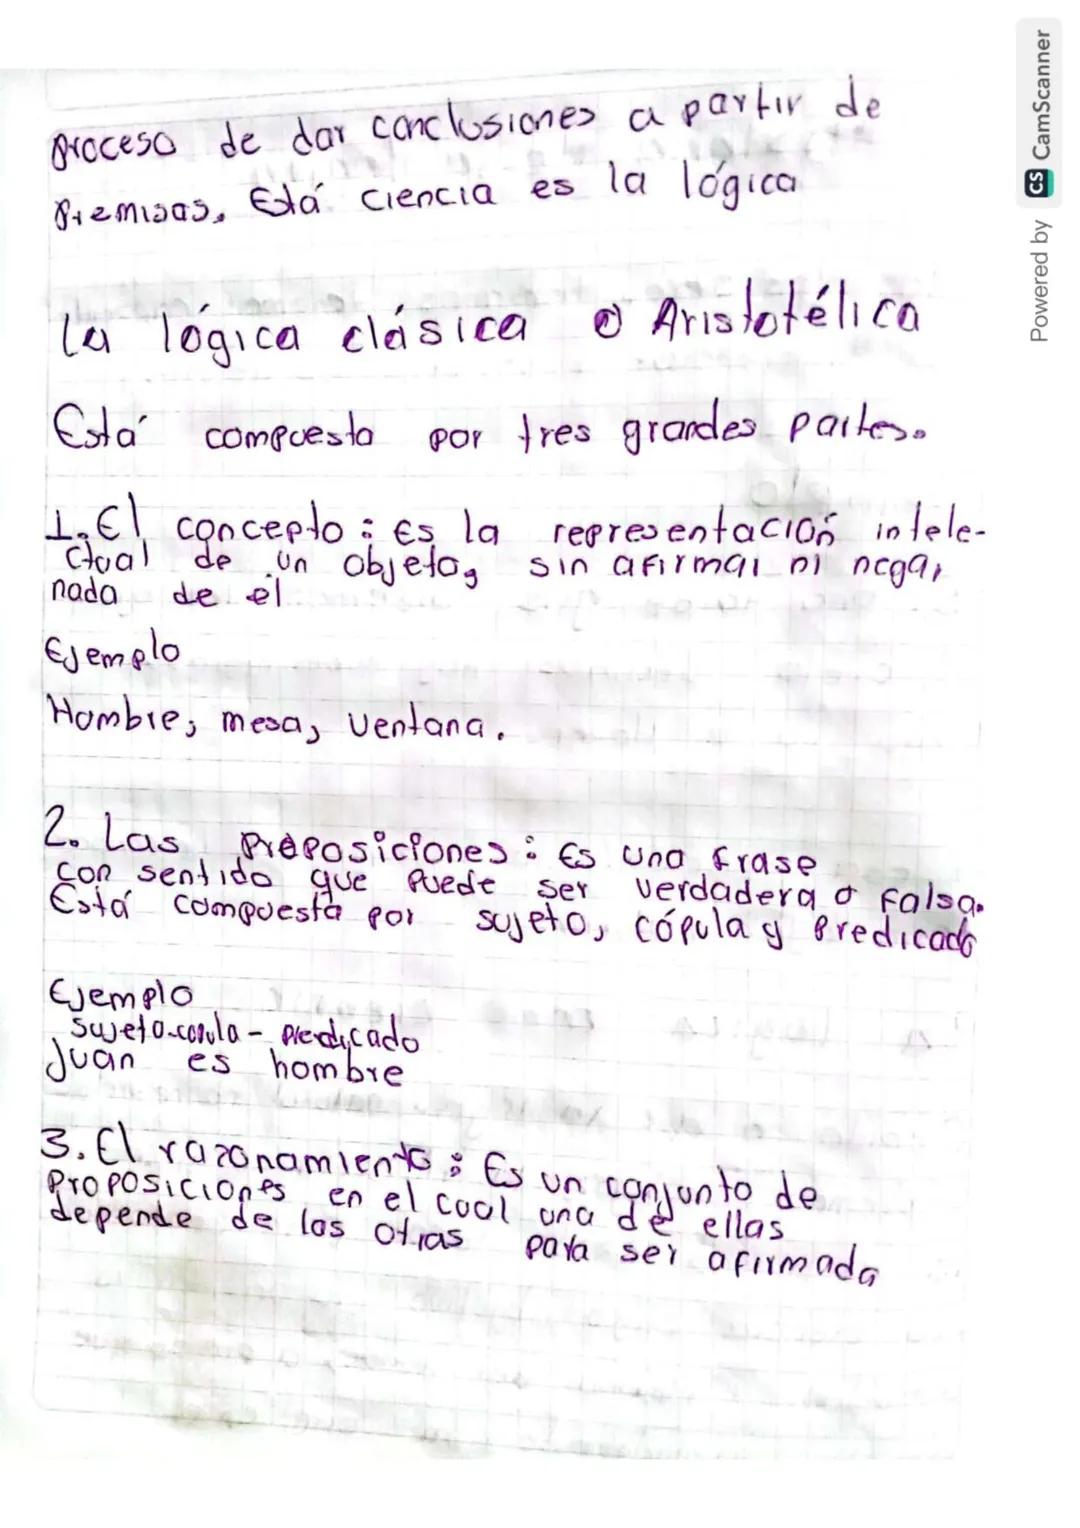 proceso de dar conclusiones a partir de
premisas. Está ciencia es la lógica
La lógica clásica o Aristotélica
Está compuesta por tres grandes partes.
1. El concepto: Es la representación intele-
ctual de un objeto, sin afirmar ni negar
nada de él
Ejemplo
Hombre, mesa, ventana.
2. Las preposiciones: Es una frase
con sentido que puede ser verdadera o falsa.
Está compuesta por sujeto, cópula y predicado
Ejemplo
sujeto-copula-predicado
Juan es hombre
3. El razonamiento: Es un conjunto de
proposiciones en el cual una de ellas
depende de las otras para ser afirmada
Powered by CS CamScanner